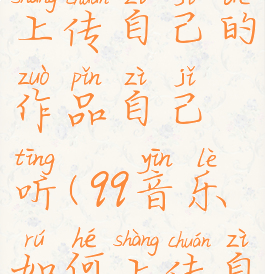 shàng chuán zì jǐ de
上传自己的
zuò pǐn zì jǐ
作品自己
tīng yīn lè
听(99音乐
rú hé shàng chuán zì
如何上传自